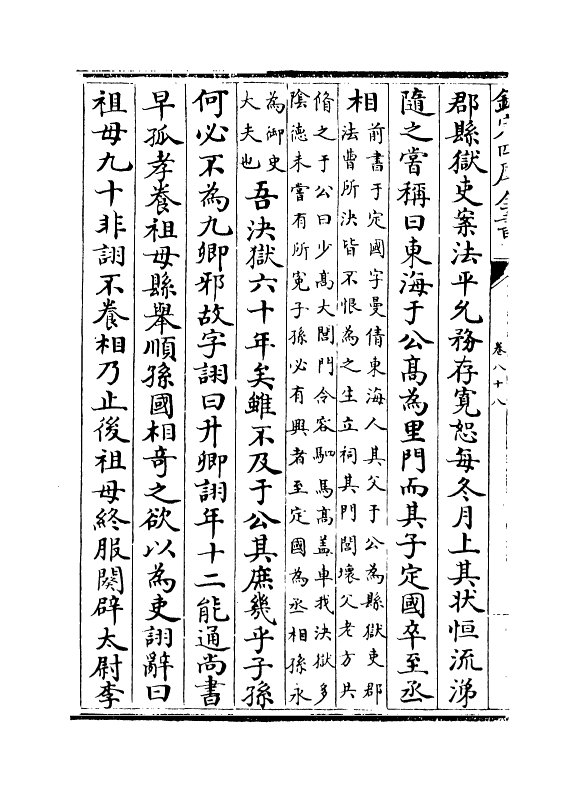 欽定四庫全書
卷八十八
郡縣獄吏案法平允務存寛恕每冬月上其狀恒流涕
隨之嘗稱曰東海于公髙為里門而其子定國卒至丞
相
前書于定國字曼倩東海人其父于公為縣獄吏郡
法曹所決皆不恨為之生立祠其門閭壞父老方共
脩之于公曰少髙大閭門令容駟馬髙盖車我決獄多
陰德未嘗有所寃子孫必有興者至定國為丞相孫永
為御史
大夫也
吾決獄六十年矣雖不及于公其庶幾乎子孫
何必不為九卿邪故字詡曰升卿詡年十二能通尚書
早孤孝養祖母縣舉順孫國相竒之欲以為吏詡辭曰
祖母九十非詡不養相乃止後祖母終服闋辟太尉李